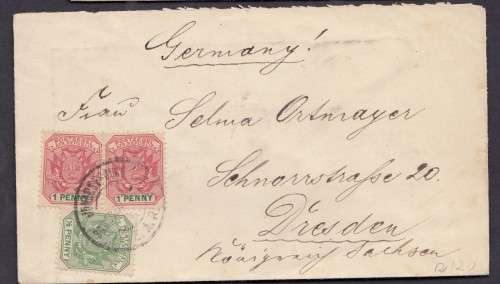 Germany!
Frau Selma Ortmayer
Schnorrstraße 20.
Dresden
Königreich Sachsen
1 PENNY 1 PENNY
½ PENNY